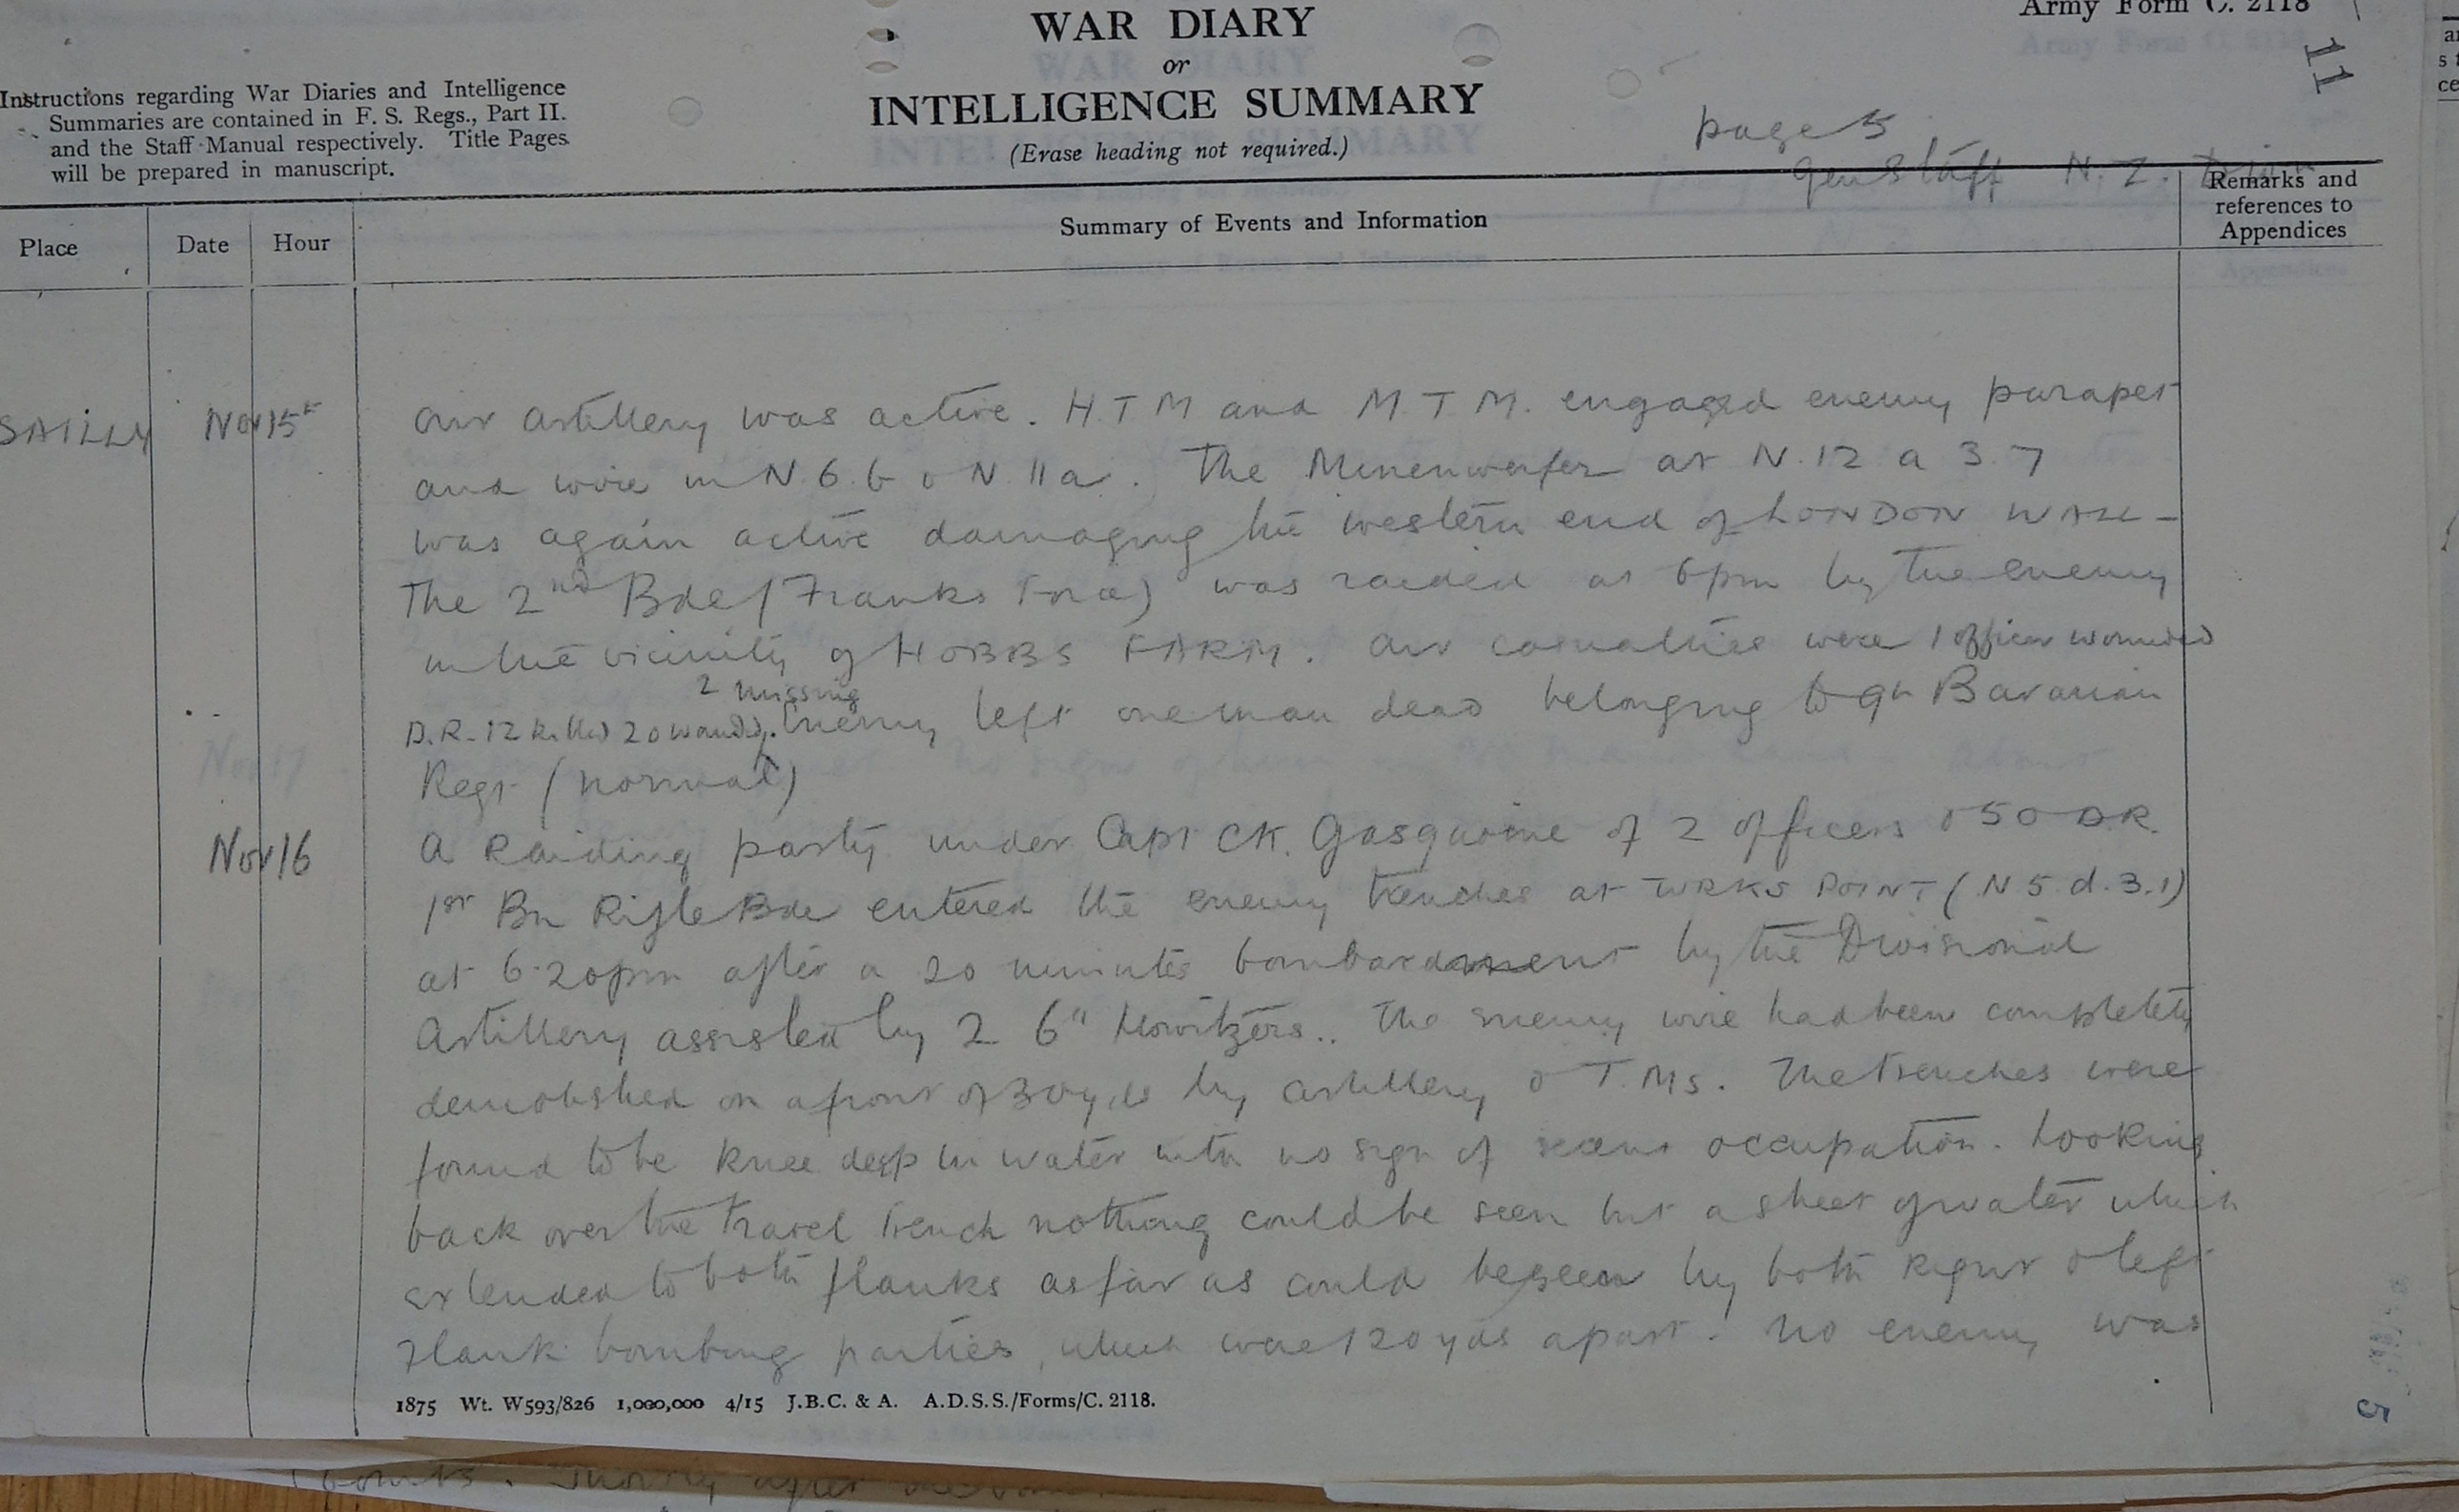 Army Form C. 2118
11
WAR DIARY
or
INTELLIGENCE SUMMARY
(Erase heading not required.)
Instructions regarding War Diaries and Intelligence
Summaries are contained in F. S. Regs., Part II.
and the Staff Manual respectively. Title Pages
will be prepared in manuscript.
page 5
Gen Staff N. Z. Divn
Place
Date
Hour
Summary of Events and Information
Remarks and
references to
Appendices
SAILLY Nov 15th Our artillery was active. H.T.M and M.T.M. engaged enemy parapet
and wire in N.6.b & N.11a. The Minenwerfer at N.12 a 3.7
was again active damaging the western end of LONDON WALL -
The 2nd Bde (Franks Force) was raided at 6pm by the enemy
in the vicinity of HOBBS FARM. Our casualties were 1 officer wounded
2 missing
O.R. 12 killed 20 wounded. Enemy left one man dead belonging to 9th Bavarian
Regt (normal)
Nov 16 A Raiding party under Capt CK. Gasquoine of 2 officers & 50 O.R.
1st Bn Rifle Bde entered the enemy trenches at TURKS POINT (N.5.d.3.1)
at 6.20pm after a 20 minutes bombardment by the Divisional
Artillery assisted by 2 6" Howitzers.. The enemy wire had been completely
demolished on a front of 30 yds by artillery & T.Ms. The trenches were
found to be knee deep in water with no sign of recent occupation. Looking
back over the Travel Trench nothing could be seen but a sheet of water which
extended to both flanks as far as could be seen by both Right & left
Flank bombing parties, which were 120 yds apart. No enemy was
1875 Wt. W593/826 1,000,000 4/15 J.B.C. & A. A.D.S.S./Forms/C. 2118.
5